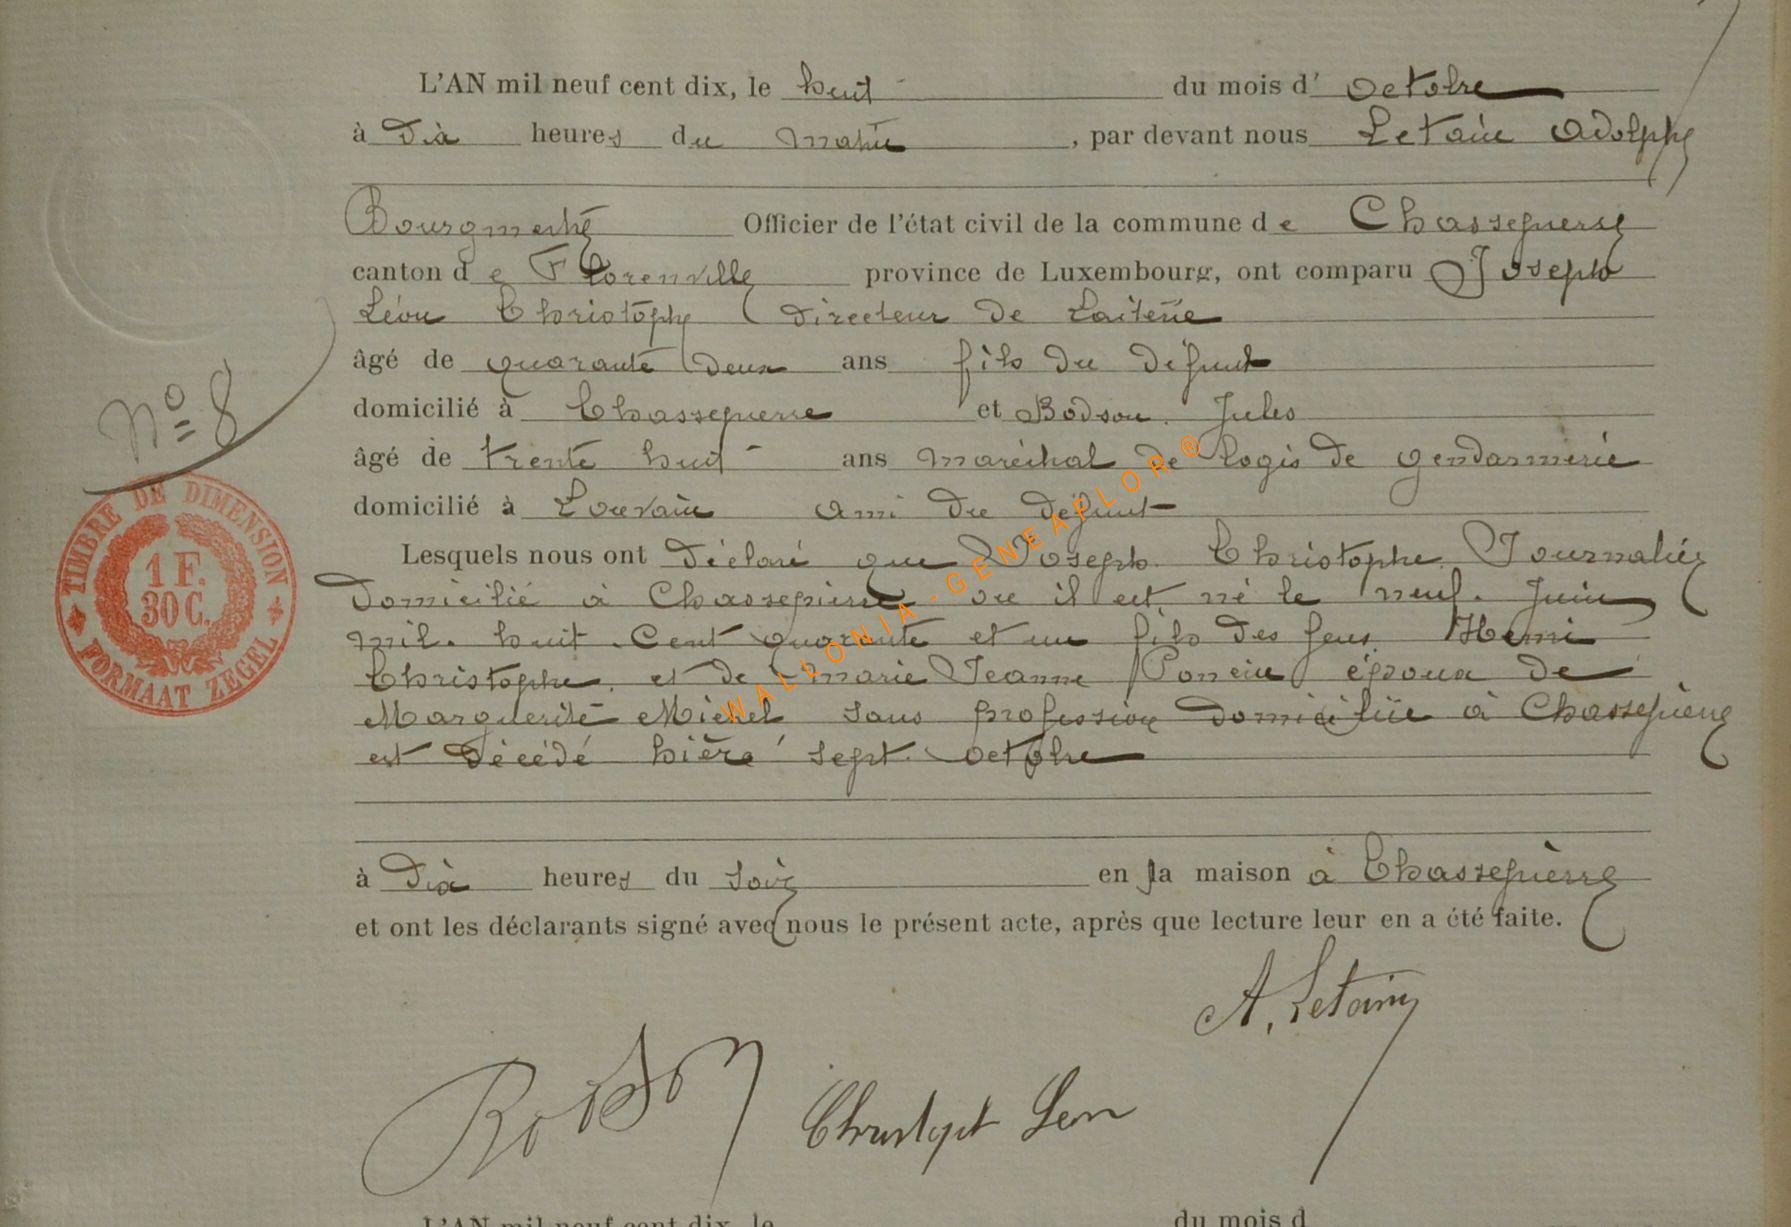 L'AN mil neuf cent dix, le huit du mois d'octobre
à Dix heures du matin, par devant nous Letain Adolphe
Bourgmestre Officier de l'état civil de la commune de Chassepierre
canton de Florenville province de Luxembourg, ont comparu Joseph
Léon Christophe Directeur de Laiterie
âgé de quarante Deux ans fils du défunt
domicilié à Chassepierre et Bodson Jules
âgé de trente huit ans maréchal de logis de gendarmerie
domicilié à Louvain ami du défunt
Lesquels nous ont déclaré que Joseph Christophe Journalier
Domicilié à Chassepierre ou il est né le neuf Juin
mil huit Cent quarante et un fils des feus Henri
Christophe et de Marie Jeanne Poncin époux de
Marguerite Michel sans profession domiciliée à Chassepierre
est décédé hière sept octobre
à Dix heures du soir en la maison à Chassepierre
et ont les déclarants signé avec nous le présent acte, après que lecture leur en a été faite.
A. Letain
Bodson Christophe Léon
L'AN mil neuf cent dix, le du mois d
N° 8
TIMBRE DE DIMENSION
1 F.
30 C.
FORMAAT ZEGEL
WALLONIA-GENEAFLOR®